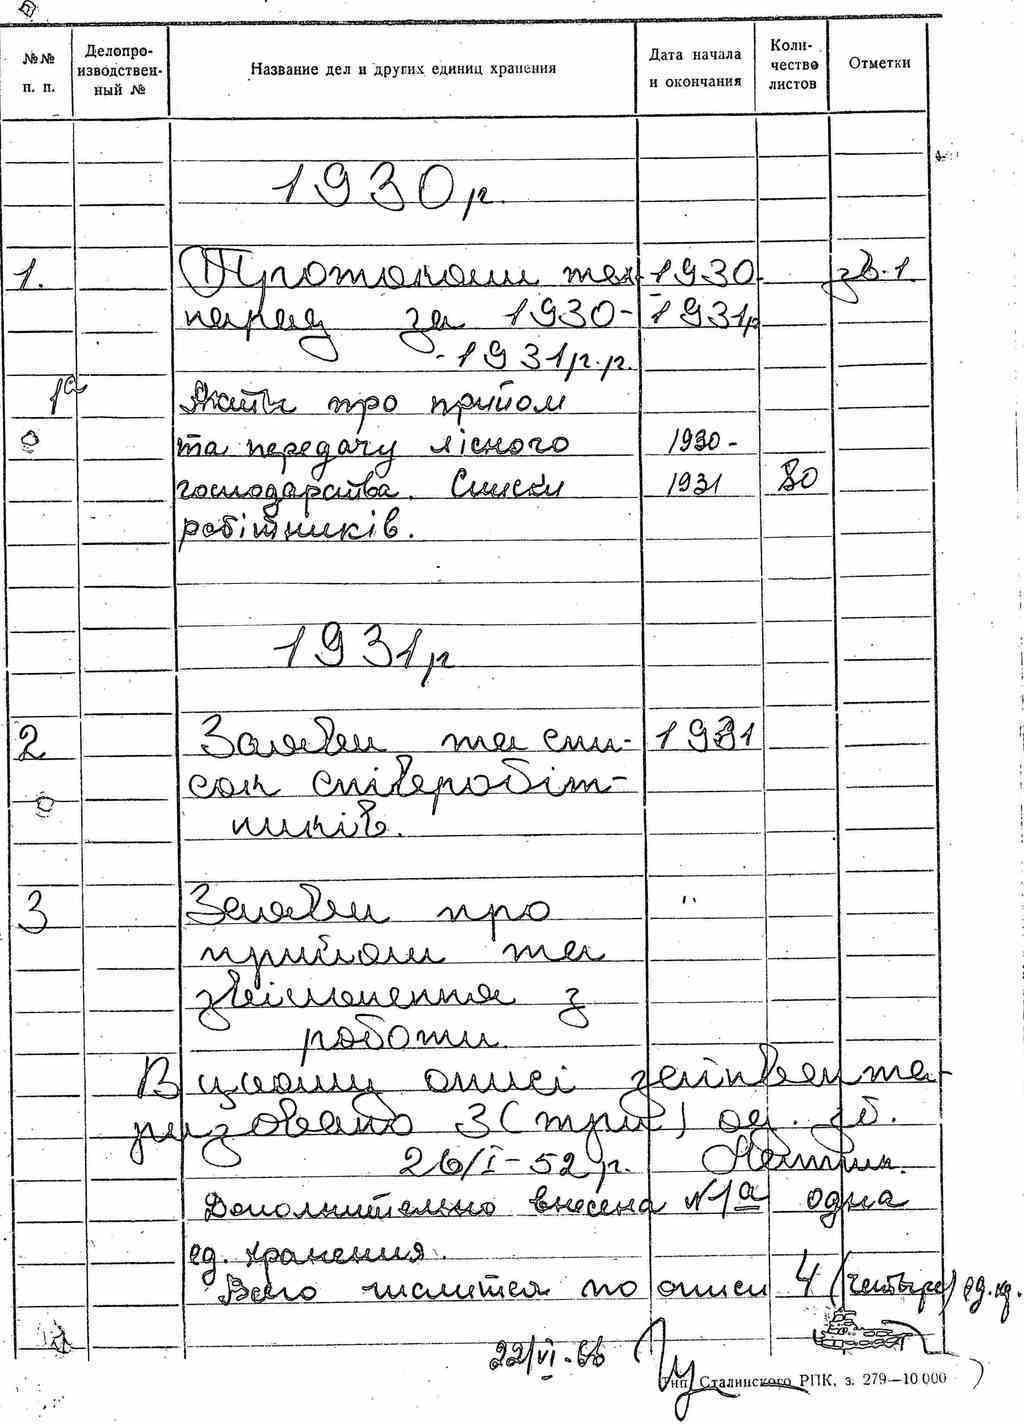 №№ п. п.
Делопро-
изводствен-
ный №
Название дел и других единиц хранения
Дата начала
и окончания
Коли-
чество
листов
Отметки
1930р.
1. Протоколи тех- 1930- зв.1
нарад за 1930- -1931р
-1931р.р.
1а Акты про прийом
та передачу лісного 1930-
господарства. Списки 1931 80
робітників.
1931р
2 Заявки та спи- 1931
сок співробіт-
ників.
3 Заявки про "
прийом та
звільнення з
роботи.
В цьому описі заінвента-
ризовано 3 (три) од. зб.
26/I-52 р.
Дополнительно внесена №1а одна
ед. хранения.
Всего числится по описи 4 (четыре) ед.хр.
22/VI-66
Тип. Сталинского РПК, з. 279—10 000